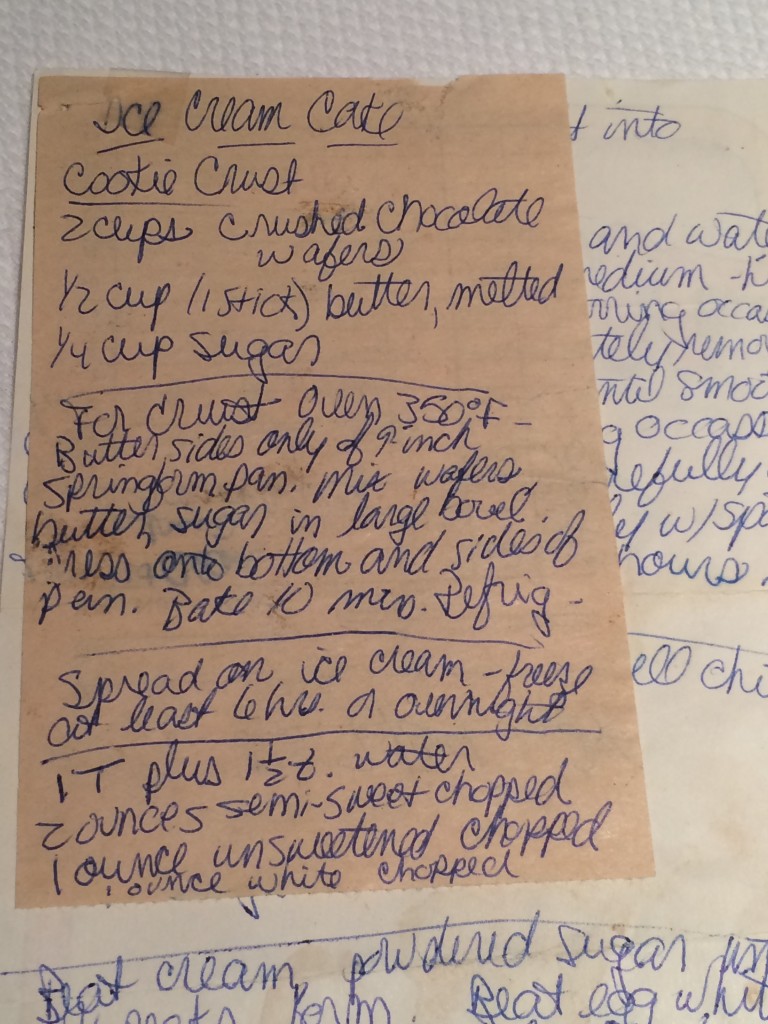 Ice Cream Cake
Cookie Crust
2 cups crushed chocolate
wafers
1/2 cup (1 stick) butter, melted
1/4 cup sugar
For crust oven 350°F -
Butter sides only of 9 inch
springform pan. Mix wafers
butter, sugar in large bowl.
Press onto bottom and sides of
pan. Bake 10 min. Refrig -
Spread on ice cream - freeze
at least 6 hrs. or overnight
1 T plus 1 1/2 t. water
2 ounces semi-sweet chopped
1 ounce unsweetened chopped
1 ounce white chopped
into
and wate
medium - h
rring occas
tely remo
ntil smoo
g occaps
refully
ly w/spo
hours.
ell chi
Beat cream, powdered sugar
form. Beat egg whit